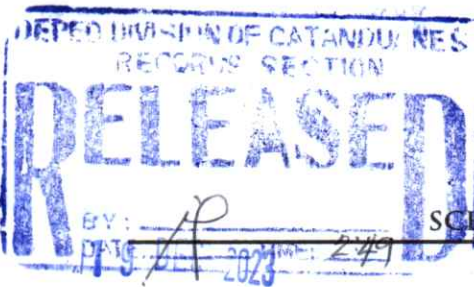 DEPED DIVISION OF CATANDUANES
RECORDS SECTION
RELEASED
BY:
DATE 19 DEC 2023 TIME: 2:49
SC